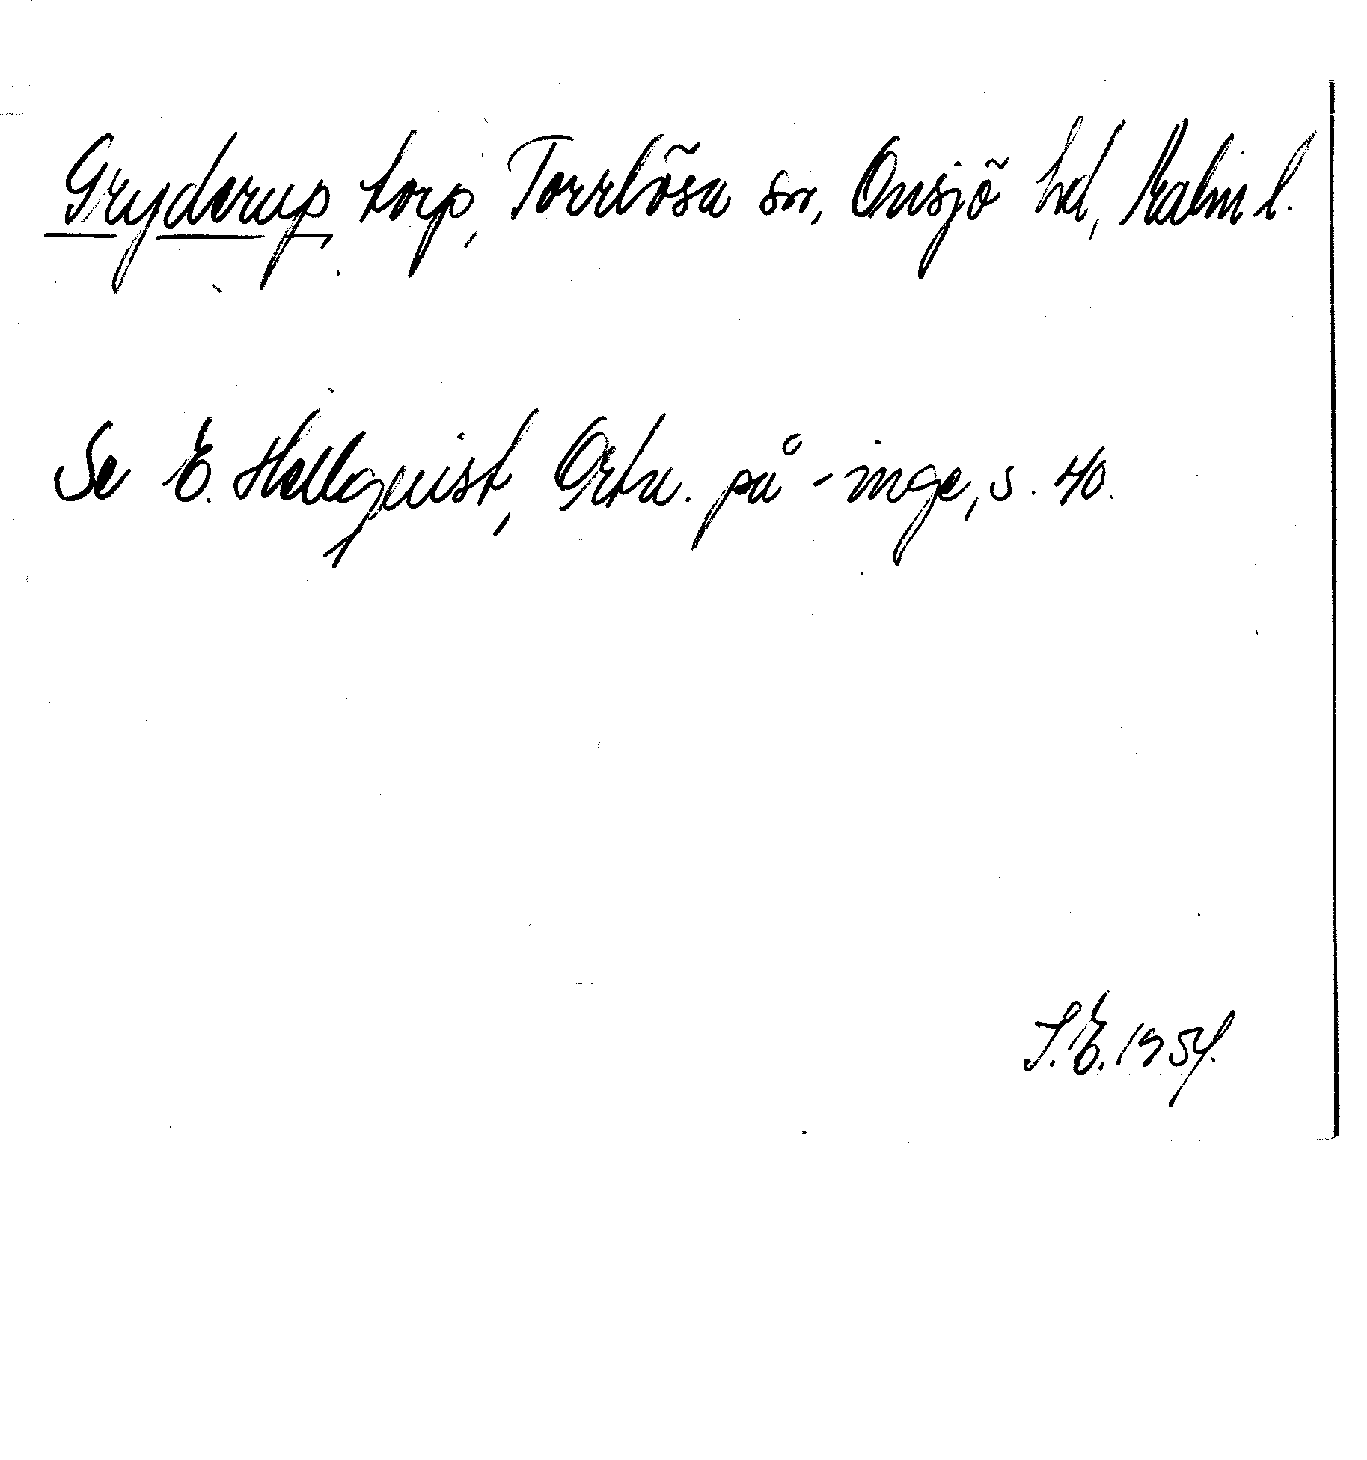 Gryderup torp, Torrlösa sn, Onsjö hd, Malm l.
Se E. Hellquist, Ortn. på -inge, s. 40.
S.E. 1954.